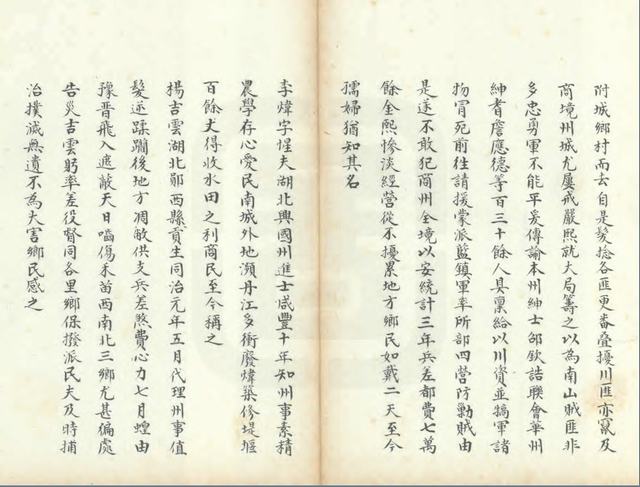 附城鄉村而去自是髮捻各匪更番疊擾川匪亦竄及
商境州城尤屢戒嚴熙就大局籌之以為南山賊匪非
多忠勇軍不能平爰傳諭本州紳士邰欽誥聯會華州
紳耆詹應德等百三十餘人具稟給以川資並犒軍諸
物冒死前往請援蒙派藍鎮軍率所部四營防勦賊由
是遂不敢犯商州全境以安統計三年兵差都費七萬
餘金熙慘淡經營從不擾累地方鄉民如戴二天至今
孺婦猶知其名
李煒字惺夫湖北興國州進士咸豐十年知州事素精
農學存心愛民南城外地瀕丹江多衝廢煒築修堤堰
百餘丈得收水田之利商民至今稱之
楊吉雲湖北鄖西縣貢生同治元年五月代理州事值
髮逆蹂躪後地方凋敝供支兵差煞費心力七月蝗由
豫晉飛入遮蔽天日嚙傷禾苗西南北三鄉尤甚偏處
告災吉雲躬率差役督同各里鄉保撥派民夫及時捕
治撲滅無遺不為大害鄉民感之